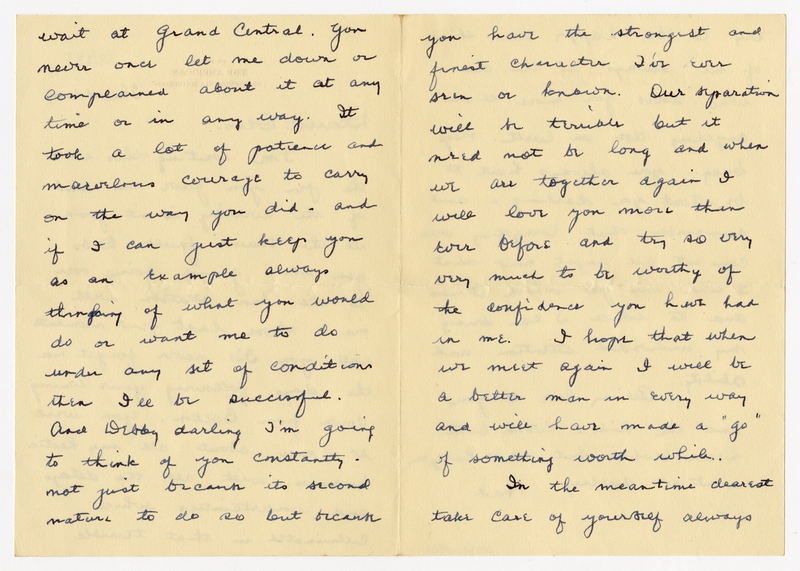 wait at Grand Central. You
never once let me down or
complained about it at any
time or in any way. It
took a lot of patience and
marvelous courage to carry
on the way you did - and
if I can just keep you
as an example always
thinking of what you would
do or want me to do
under any set of conditions
then I'll be successful.
And Debby darling I'm going
to think of you constantly -
not just because its second
nature to do so but because
you have the strongest and
finest character I've ever
seen or known. Our separation
will be terrible but it
need not be long and when
we are together again I
will love you more then
ever before and try so very
very much to be worthy of
the confidence you have had
in me. I hope that when
we meet again I will be
a better man in every way
and will have made a "go"
of something worth while.
In the meantime dearest
take care of yourself always